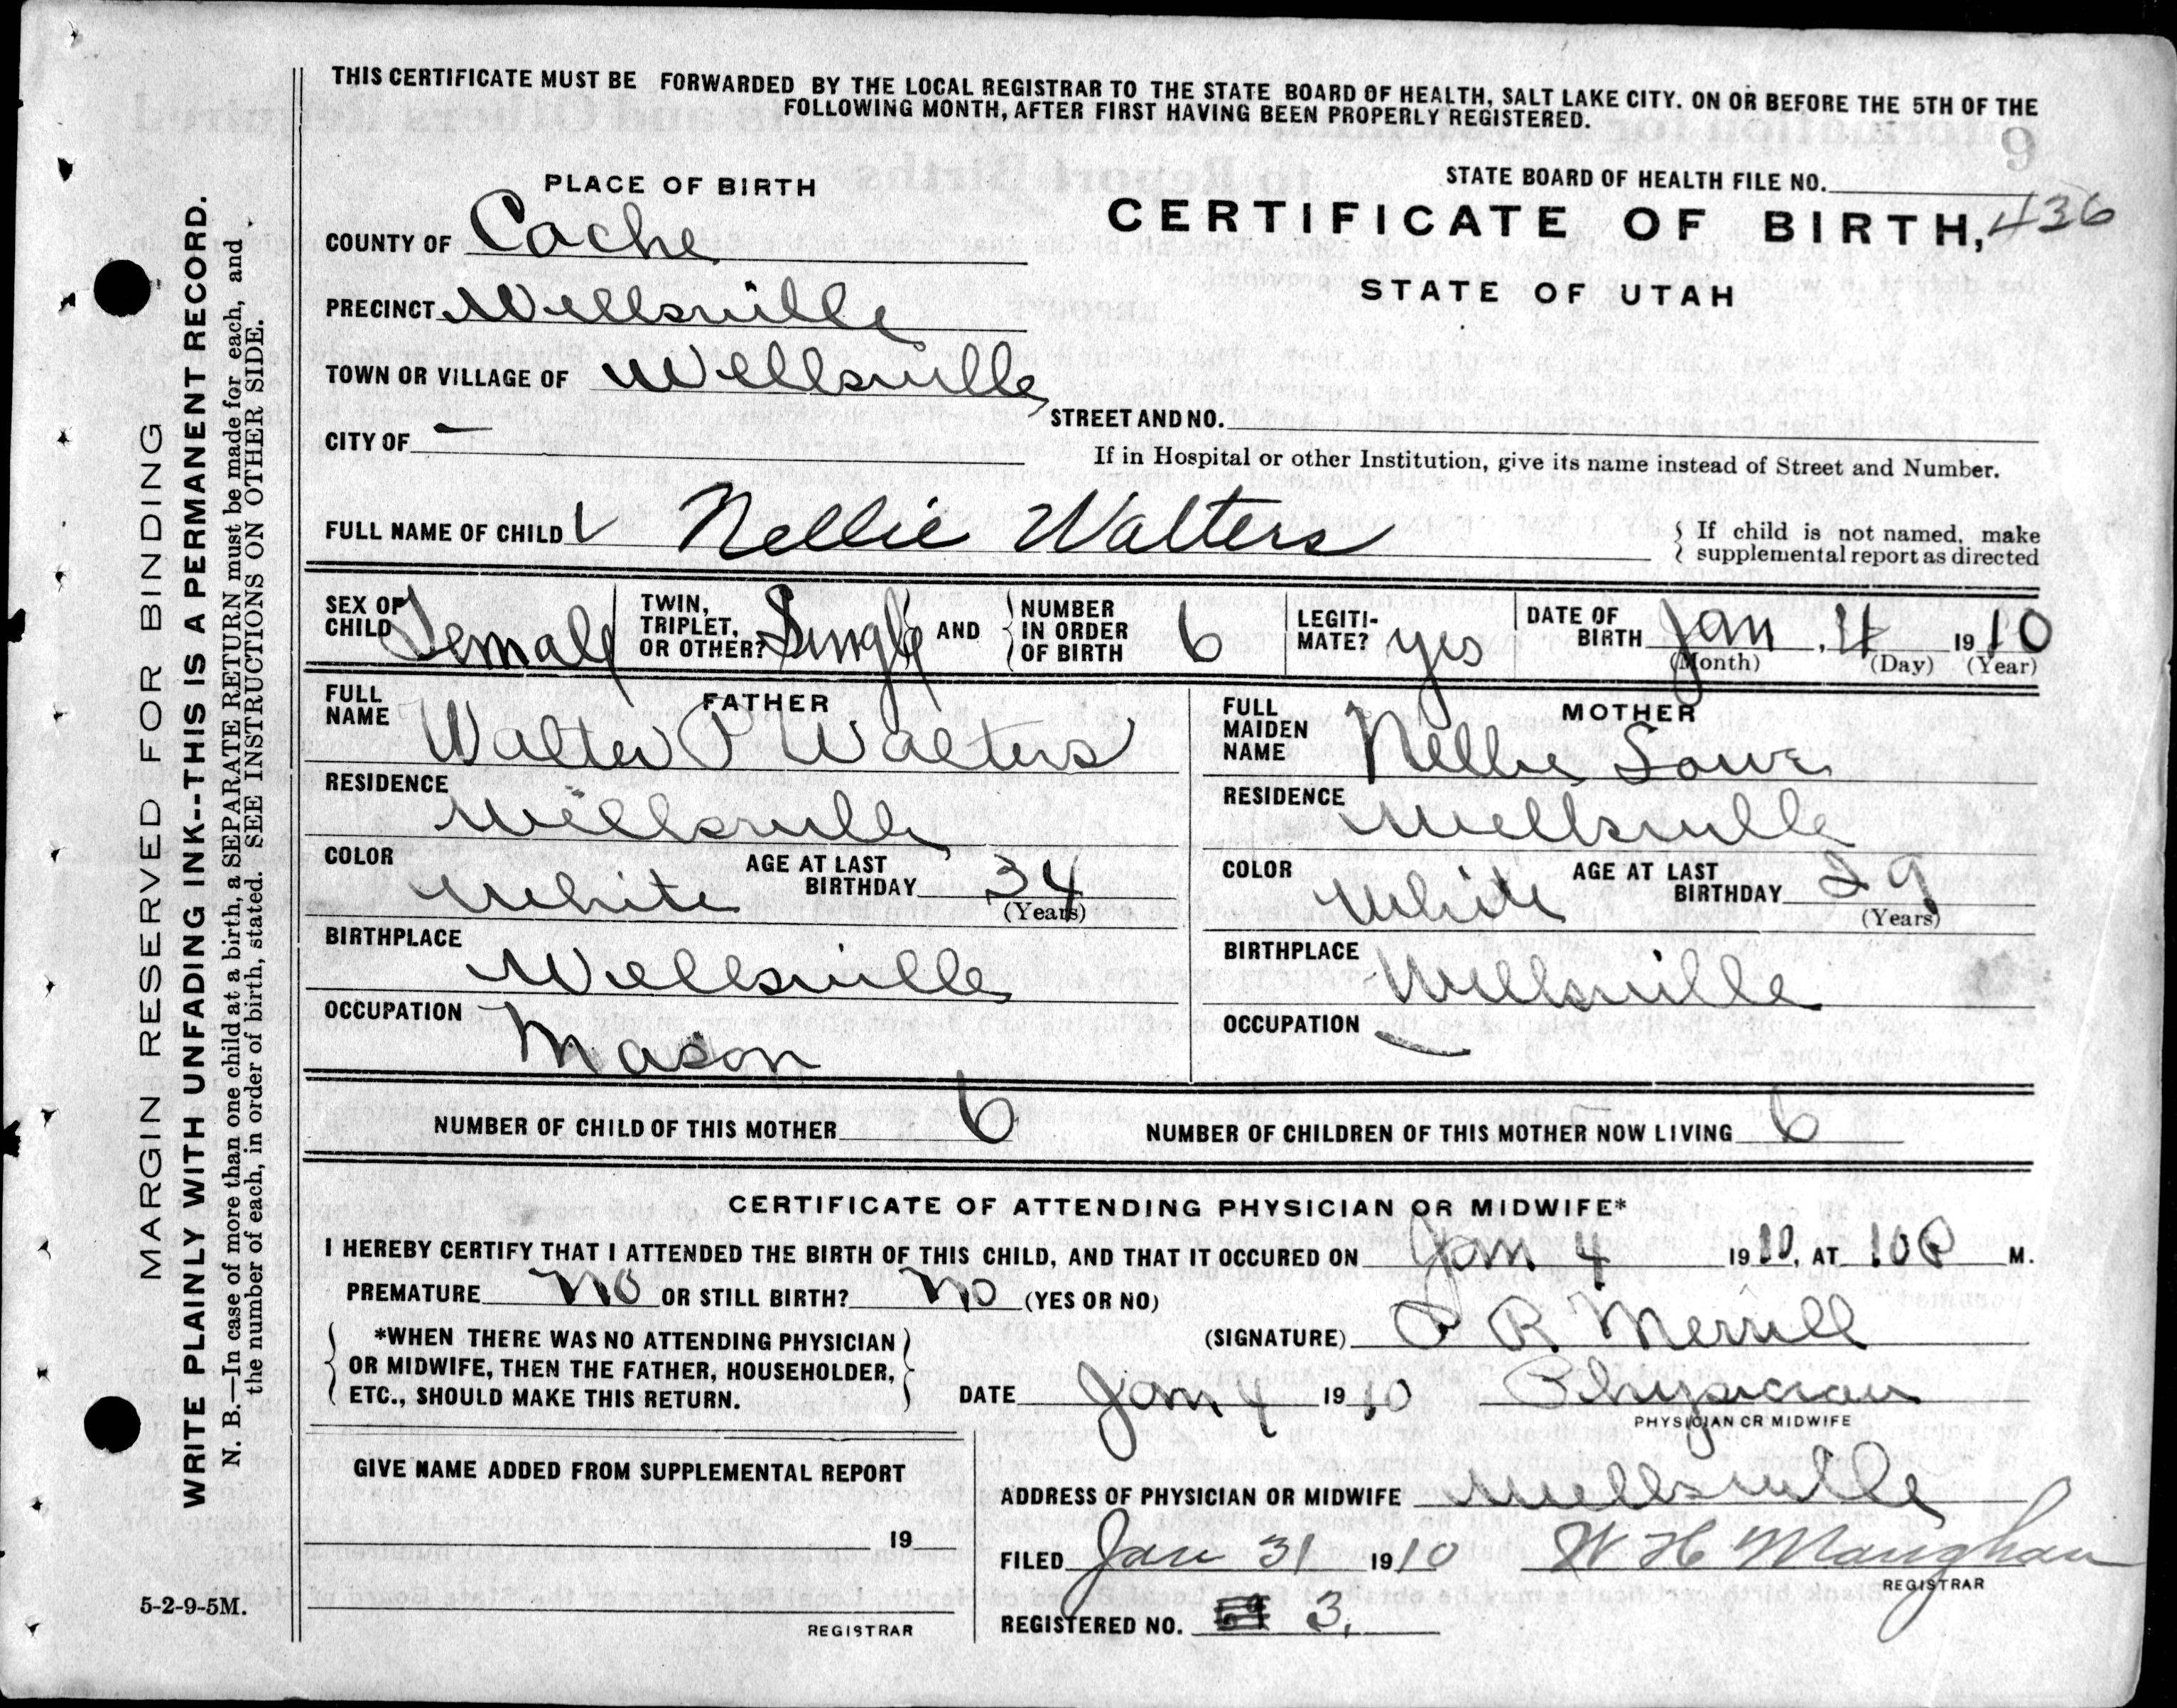 THIS CERTIFICATE MUST BE FORWARDED BY THE LOCAL REGISTRAR TO THE STATE BOARD OF HEALTH, SALT LAKE CITY. ON OR BEFORE THE 5TH OF THE
FOLLOWING MONTH, AFTER FIRST HAVING BEEN PROPERLY REGISTERED.
MARGIN RESERVED FOR BINDING
WRITE PLAINLY WITH UNFADING INK--THIS IS A PERMANENT RECORD.
N. B.—In case of more than one child at a birth, a SEPARATE RETURN must be made for each, and
the number of each, in order of birth, stated. SEE INSTRUCTIONS ON OTHER SIDE.
PLACE OF BIRTH
STATE BOARD OF HEALTH FILE NO.
CERTIFICATE OF BIRTH, 436
STATE OF UTAH
COUNTY OF Cache
PRECINCT Wellsville
TOWN OR VILLAGE OF Wellsville
STREET AND NO.
CITY OF —
If in Hospital or other Institution, give its name instead of Street and Number.
FULL NAME OF CHILD Nellie Walters
If child is not named, make
supplemental report as directed
SEX OF CHILD Female TWIN, TRIPLET, OR OTHER? Single AND NUMBER IN ORDER OF BIRTH 6 LEGITI-MATE? yes DATE OF BIRTH Jan, 4 1910
(Month) (Day) (Year)
FATHER
FULL NAME Walter P Walters
RESIDENCE Wellsville
COLOR White AGE AT LAST BIRTHDAY 34
(Years)
BIRTHPLACE Wellsville
OCCUPATION Mason
MOTHER
FULL MAIDEN NAME Nellie Lowe
RESIDENCE Wellsville
COLOR White AGE AT LAST BIRTHDAY 29
(Years)
BIRTHPLACE Wellsville
OCCUPATION —
NUMBER OF CHILD OF THIS MOTHER 6 NUMBER OF CHILDREN OF THIS MOTHER NOW LIVING 6
CERTIFICATE OF ATTENDING PHYSICIAN OR MIDWIFE*
I HEREBY CERTIFY THAT I ATTENDED THE BIRTH OF THIS CHILD, AND THAT IT OCCURED ON Jan 4 1910, AT 10 P M.
PREMATURE No OR STILL BIRTH? No (YES OR NO)
*WHEN THERE WAS NO ATTENDING PHYSICIAN
OR MIDWIFE, THEN THE FATHER, HOUSEHOLDER,
ETC., SHOULD MAKE THIS RETURN.
(SIGNATURE) R Merrill
DATE Jan 4 1910 Physician
PHYSICIAN OR MIDWIFE
GIVE NAME ADDED FROM SUPPLEMENTAL REPORT
19
REGISTRAR
ADDRESS OF PHYSICIAN OR MIDWIFE Wellsville
FILED Jan 31 1910 W H Maughan
REGISTRAR
REGISTERED NO. 3.
5-2-9-5M.